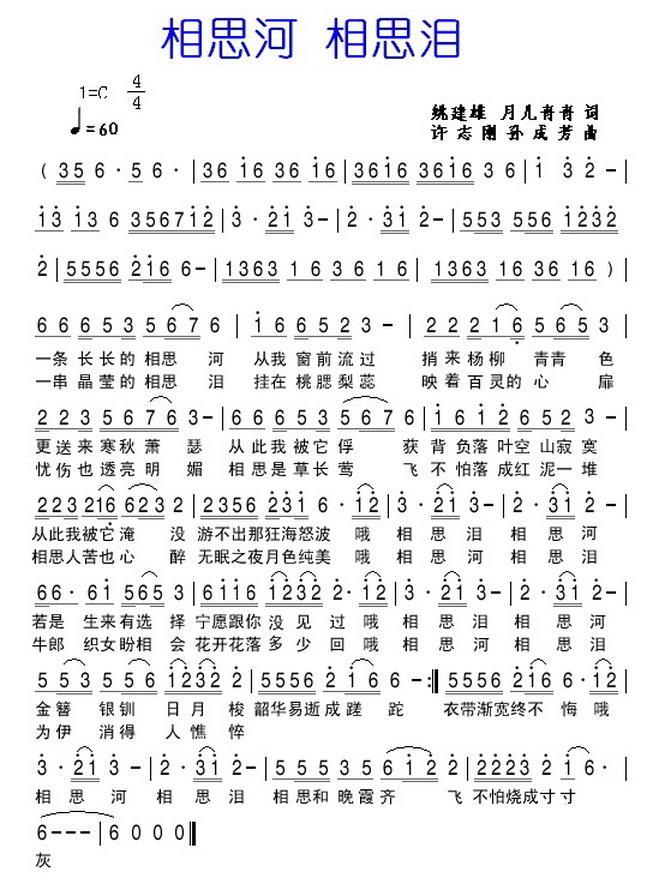 相思河 相思泪
1=C 4/4
♩=60
姚建雄 月儿青青 词
许志刚 孙成芳 曲
( 3 5 6 · 5 6 · | 3 6 1 6 3 6 1 6 | 3 6 1 6 3 6 1 6 3 6 | 1 3 2 – |
1 3 1 3 6 3 5 6 7 1 2 | 3 · 2 1 3 – | 2 · 3 1 2 – | 5 5 3 5 5 6 1 2 3 2
2 | 5 5 5 6 2 1 6 6 – | 1 3 6 3 1 6 3 6 1 6 | 1 3 6 3 1 6 3 6 1 6 ) |
6 6 6 5 3 5 6 7 6 | 1 6 6 5 2 3 – | 2 2 2 1 6 5 6 5 3 |
一条 长长的 相思 河 从我 窗前流过 捎来 杨柳 青青 色
一串 晶莹的 相思 泪 挂在 桃腮梨蕊 映着 百灵的 心 扉
2 2 3 5 6 7 6 3 – | 6 6 6 5 3 5 6 7 6 | 1 6 1 2 6 5 2 3 – |
更送来寒秋萧 瑟 从此我被它俘 获 背负落叶空山寂寞
忧伤也透亮明 媚 相思是草长莺 飞 不怕落成红泥一堆
2 2 3 2 1 6 6 2 3 2 | 2 3 5 6 2 3 1 6 · 1 2 | 3 · 2 1 3 – | 2 · 3 1 2 – |
从此我被它淹 没 游不出那狂海怒波 哦 相思泪相思河
相思人苦也心 醉 无眠之夜月色纯美 哦 相思河相思泪
6 6 · 6 1 5 6 5 3 | 6 1 1 6 1 2 3 2 2 · 1 2 | 3 · 2 1 3 – | 2 · 3 1 2 – |
若是 生来有选 择 宁愿跟你没见过哦 相思泪相思河
牛郎 织女盼相 会 花开花落多少回哦 相思河相思泪
5 5 3 5 5 6 1 2 3 2 2 | 5 5 5 6 2 1 6 6 – :‖ 5 5 5 6 2 1 6 6 · 1 2 |
金簪 银钏 日月梭 韶华易逝成蹉 跎 衣带渐宽终不 悔哦
为伊 消得 人憔悴
3 · 2 1 3 – | 2 · 3 1 2 – | 5 5 5 3 5 6 1 2 | 2 2 2 3 2 1 6 6 · |
相 思 河 相 思 泪 相思和 晚霞齐 飞 不怕烧成寸寸
6 – – – | 6 0 0 0 ‖
灰